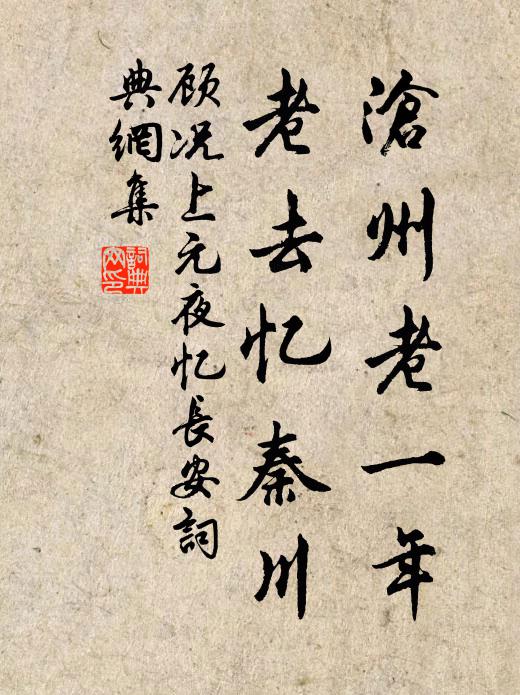 滄州老一年
老去忆秦川
顾况上元夜忆長安詞
典網集
詞典网印